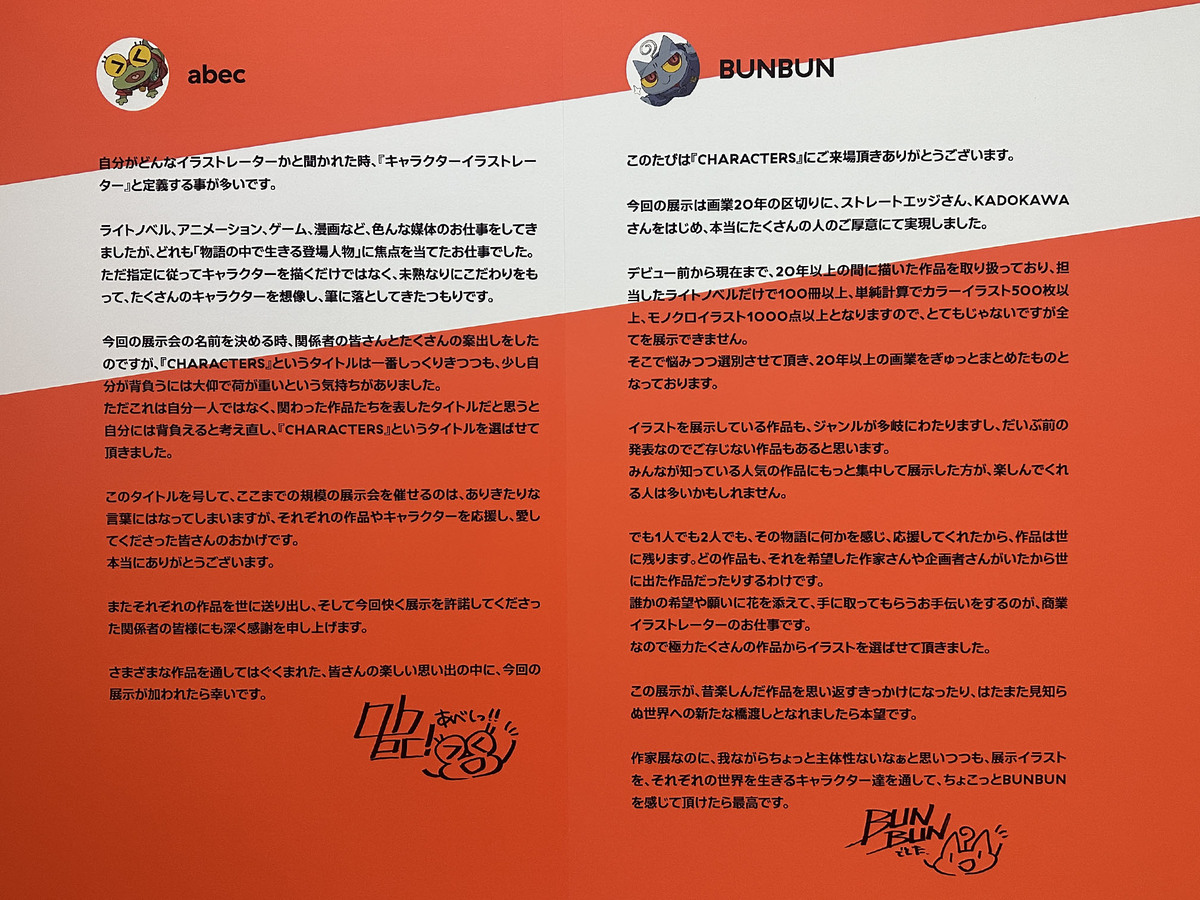 abec
自分がどんなイラストレーターかと聞かれた時、『キャラクターイラストレー
ター』と定義する事が多いです。
ライトノベル、アニメーション、ゲーム、漫画など、色んな媒体のお仕事をしてき
ましたが、どれも「物語の中で生きる登場人物」に焦点を当てたお仕事でした。
ただ指定に従ってキャラクターを描くだけではなく、未熟なりにこだわりをも
って、たくさんのキャラクターを想像し、筆に落としてきたつもりです。
今回の展示会の名前を決める時、関係者の皆さんとたくさんの案出しをした
のですが、『CHARACTERS』というタイトルは一番しっくりきつつも、少し自
分が背負うには大仰で荷が重いという気持ちがありました。
ただこれは自分一人ではなく、関わった作品たちを表したタイトルだと思うと
自分には背負えると考え直し、『CHARACTERS』というタイトルを選ばせて
頂きました。
このタイトルを号して、ここまでの規模の展示会を催せるのは、ありきたりな
言葉にはなってしまいますが、それぞれの作品やキャラクターを応援し、愛し
てくださった皆さんのおかげです。
本当にありがとうございます。
またそれぞれの作品を世に送り出し、そして今回快く展示を許諾してくださっ
た関係者の皆様にも深く感謝を申し上げます。
さまざまな作品を通してはぐくまれた、皆さんの楽しい思い出の中に、今回の
展示が加われたら幸いです。
abec!
あべしっ!!
BUNBUN
このたびは『CHARACTERS』にご来場頂きありがとうございます。
今回の展示は画業20年の区切りに、ストレートエッジさん、KADOKAWA
さんをはじめ、本当にたくさんの人のご厚意にて実現しました。
デビュー前から現在まで、20年以上の間に描いた作品を取り扱っており、担
当したライトノベルだけで100冊以上、単純計算でカラーイラスト500枚以
上、モノクロイラスト1000点以上となりますので、とてもじゃないですが全
てを展示できません。
そこで悩みつつ選別させて頂き、20年以上の画業をぎゅっとまとめたものと
なっております。
イラストを展示している作品も、ジャンルが多岐にわたりますし、だいぶ前の
発表なのでご存じない作品もあると思います。
みんなが知っている人気の作品にもっと集中して展示した方が、楽しんでくれ
る人は多いかもしれません。
でも1人でも2人でも、その物語に何かを感じ、応援してくれたから、作品は世
に残ります。どの作品も、それを希望した作家さんや企画者さんがいたから世
に出た作品だったりするわけです。
誰かの希望や願いに花を添えて、手に取ってもらうお手伝いをするのが、商業
イラストレーターのお仕事です。
なので極力たくさんの作品からイラストを選ばせて頂きました。
この展示が、昔楽しんだ作品を思い返すきっかけになったり、はたまた見知ら
ぬ世界への新たな橋渡しとなれましたら本望です。
作家展なのに、我ながらちょっと主体性ないなぁと思いつつも、展示イラスト
を、それぞれの世界を生きるキャラクター達を通して、ちょこっとBUNBUN
を感じて頂けたら最高です。
BUN
BUN
でした。